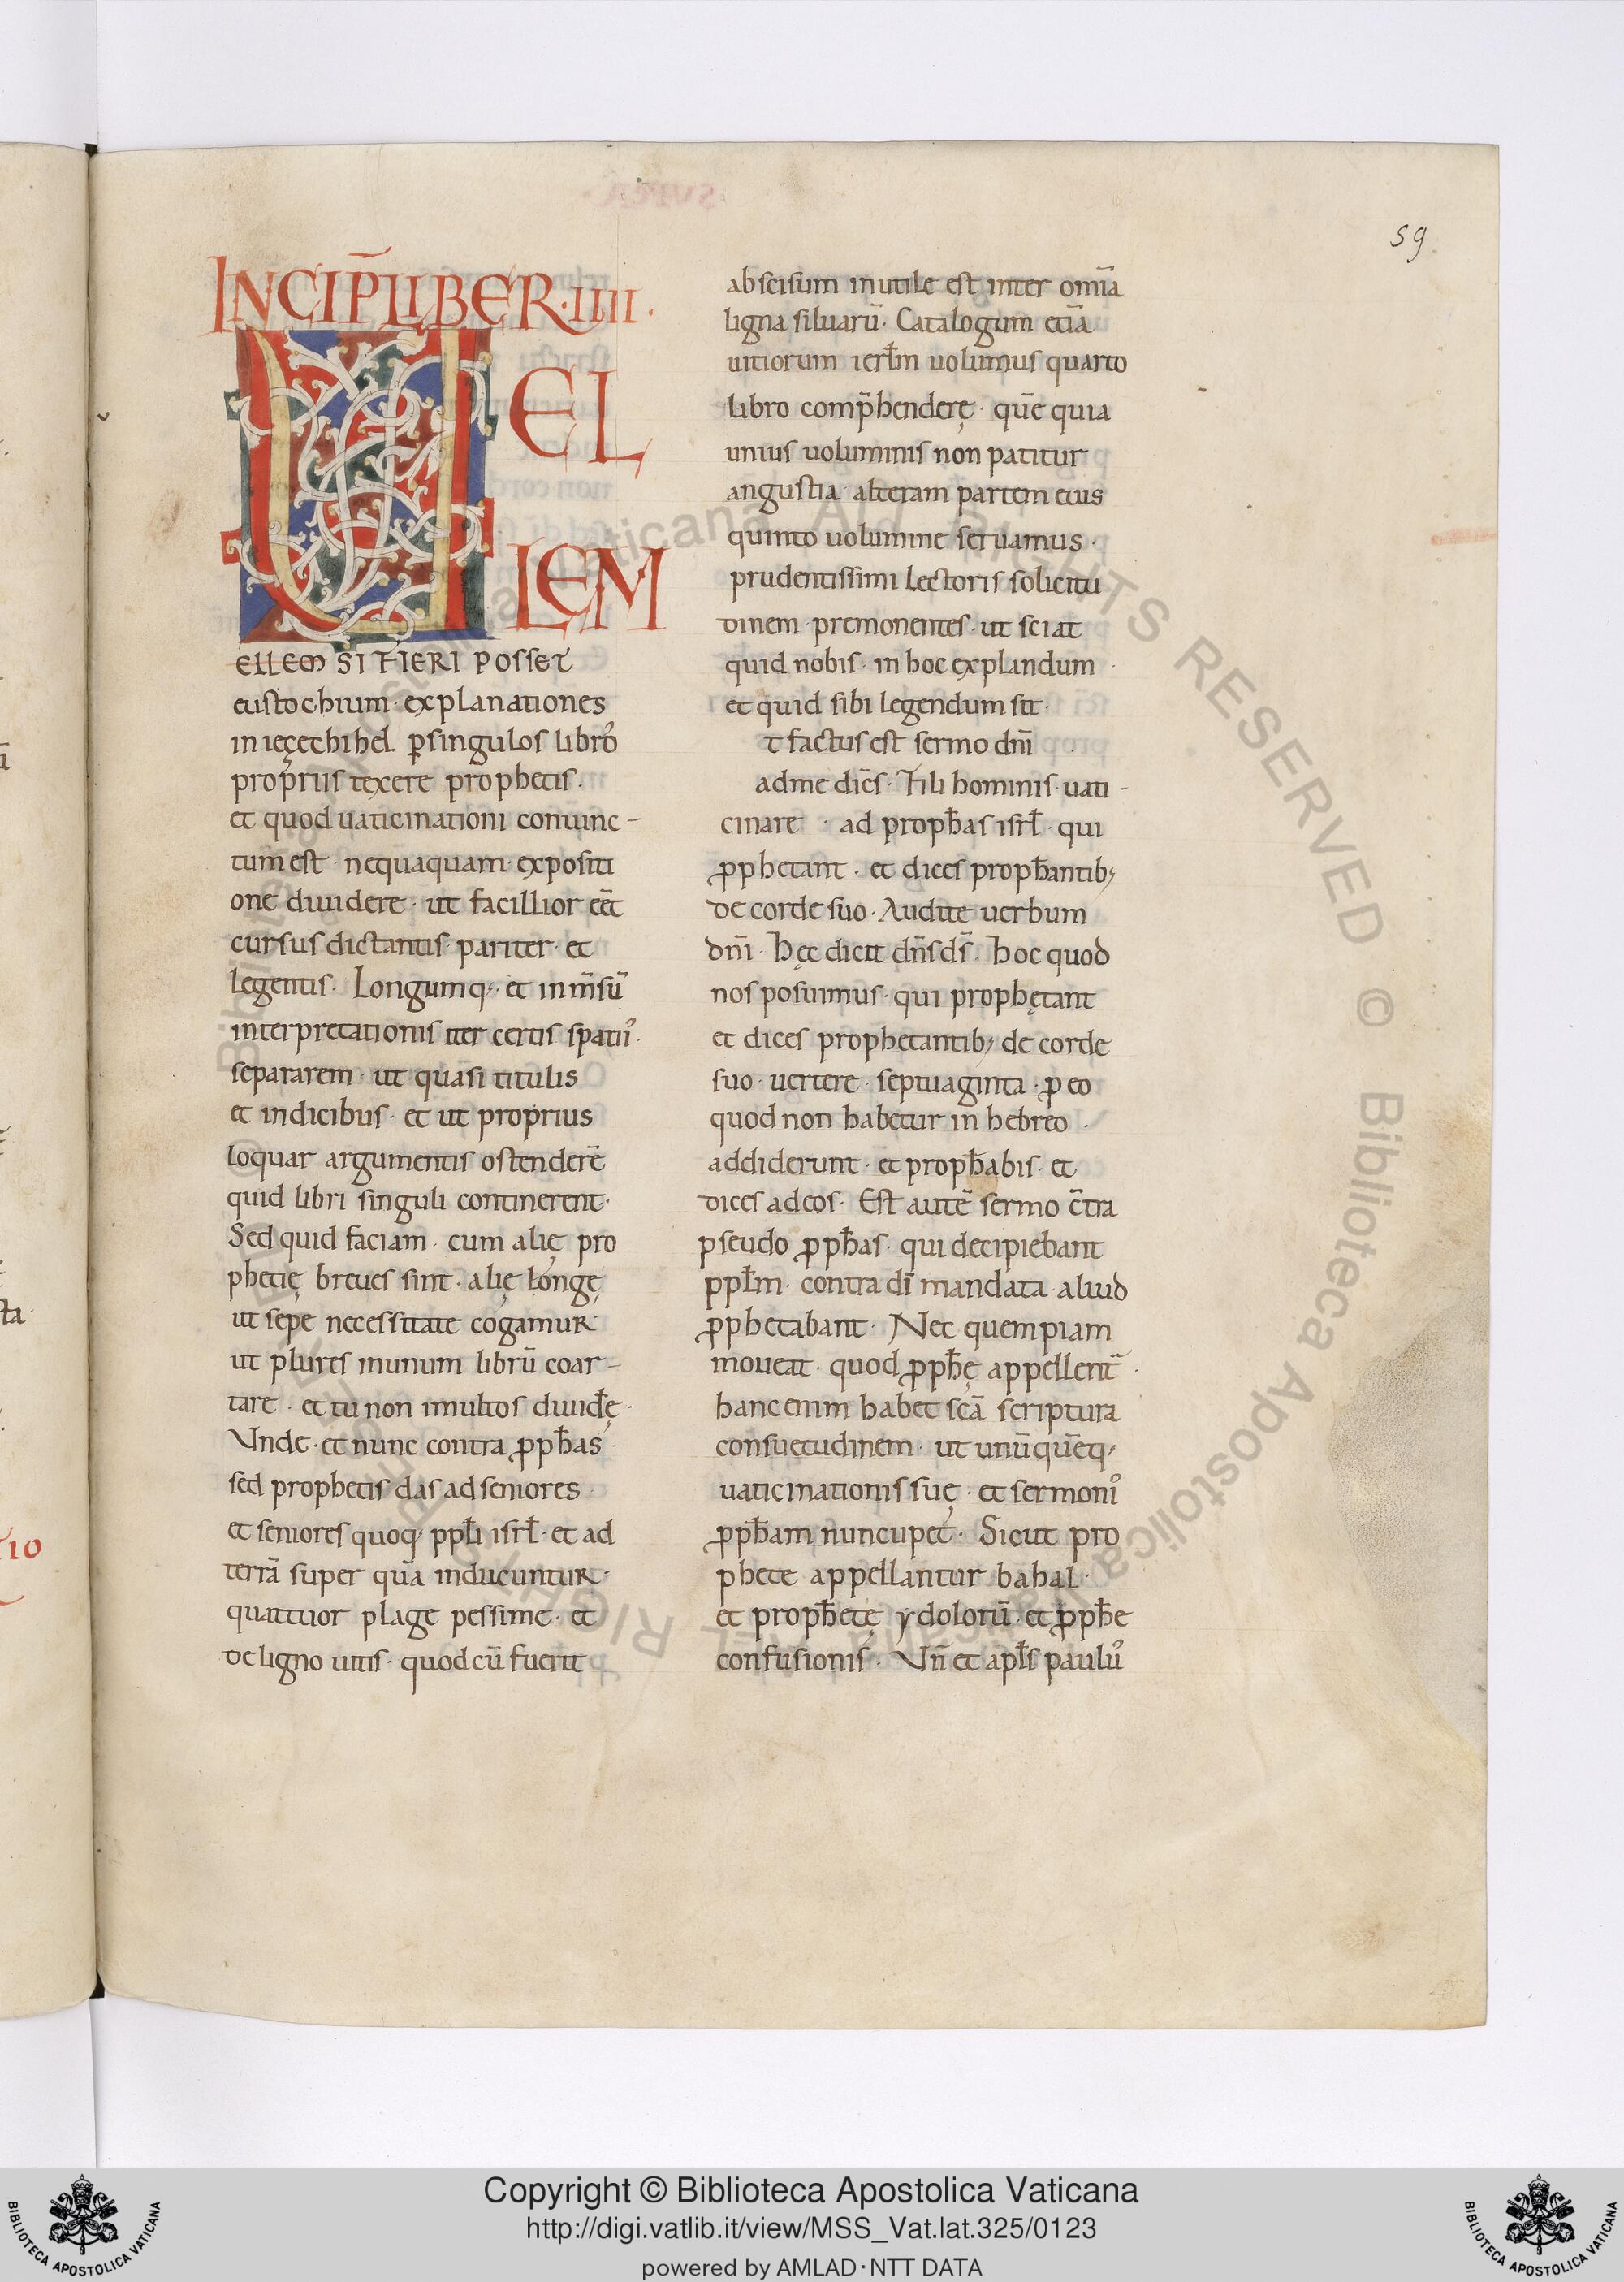 59
INCIP̄ LIBER·IIII·
U EL
LEM
ELLEM SI FIERI POSSET
eustochium· explanationes
in ięzechihel ꝑsingulos libro᾽
propriis texere prophetis·
et quod uaticinationi coniunc-
tum est· nequaquam· expositi
one diuidere· ut facillior eēt
cursus dictantis· pariter· et
legentis· Longumq·· et inm̄sū
interpretationis iter certis spatii᾽·
separarem· ut quasi titulis
et indicibus· et ut proprius
loquar argumentis ostenderē
quid libri singuli continerent·
Sed quid faciam· cum alię pro
phetię breues sint· alię longę
ut sepe necessitate cogamur
ut plures inunum librū coar-
tare· et tu non inultos diuiđę·
Unde· et nunc contra ꝓpħas·
sed prophetis das ad seniores
et seniores quoq· ppłi isrł· et ad
terrā super quā inducuntur·
quattuor plage pessime· et
de ligno uitis· quod cū fuerit
abscisum inutile est inter omīa
ligna siluarū· Catalogum etiā
uitiorum ierłm uolumus quarto
libro comp̄hendere· quē quia
unius uoluminis non patitur
angustia· alteram partem eius
quinto uolumine seruamus·
prudentissimi lectoris solicitu
dinem· premonentes· ut sciat
quid nobis· in hoc explandum·
et quid sibi legendum sit·
t factus est sermo dn̄i
adme dicēs· Fili hominis· uati-
cinare· ad propħas isrł· qui
ꝓphetant· et dices propħantib;
de corde suo· Audite uerbum
dn̄i· Hęc dicit dn̄s ds̄· Hoc quod
nos posuimus· qui prophętant
et dices prophetantib; de corde
suo· uertere· septuaginta· ꝓ eo
quod non habetur in hebreo·
addiderunt· et propħabis· et
dices adeos· Est autē sermo c̄tra
pseudo ꝓpħas· qui decipiebant
ppłm· contra dī mandata· aliud
ꝓphetabant· Nec quempiam
moueat· quod ꝓpħę appellent̄·
hanc enim habet scā scriptura
consuetudinem· ut unūquēq;
uaticinationis suę· et sermoni᾽
ꝓpħam nuncupet· Sicut pro
phete appellantur bahal·
et propħetę ydolorū· et ꝓpħe
confusionis· Un̄ et apłs paulu᾽
Copyright © Biblioteca Apostolica Vaticana
http://digi.vatlib.it/view/MSS_Vat.lat.325/0123
powered by AMLAD·NTT DATA
BIBLIOTECA APOSTOLICA VATICANA
BIBLIOTECA APOSTOLICA VATICANA